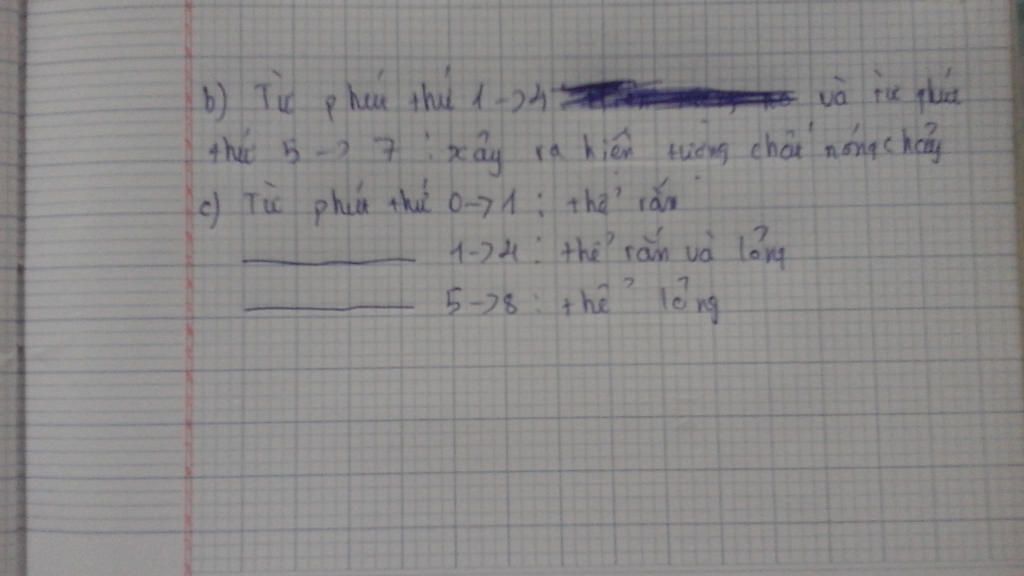 b) Từ phút thứ 1 -> 4 và từ phút
thứ 5 -> 7 : xảy ra hiện tượng chất nóng chảy
c) Từ phút thứ 0 -> 1 : thể rắn
1 -> 4 : thể rắn và lỏng
5 -> 8 : thể lỏng